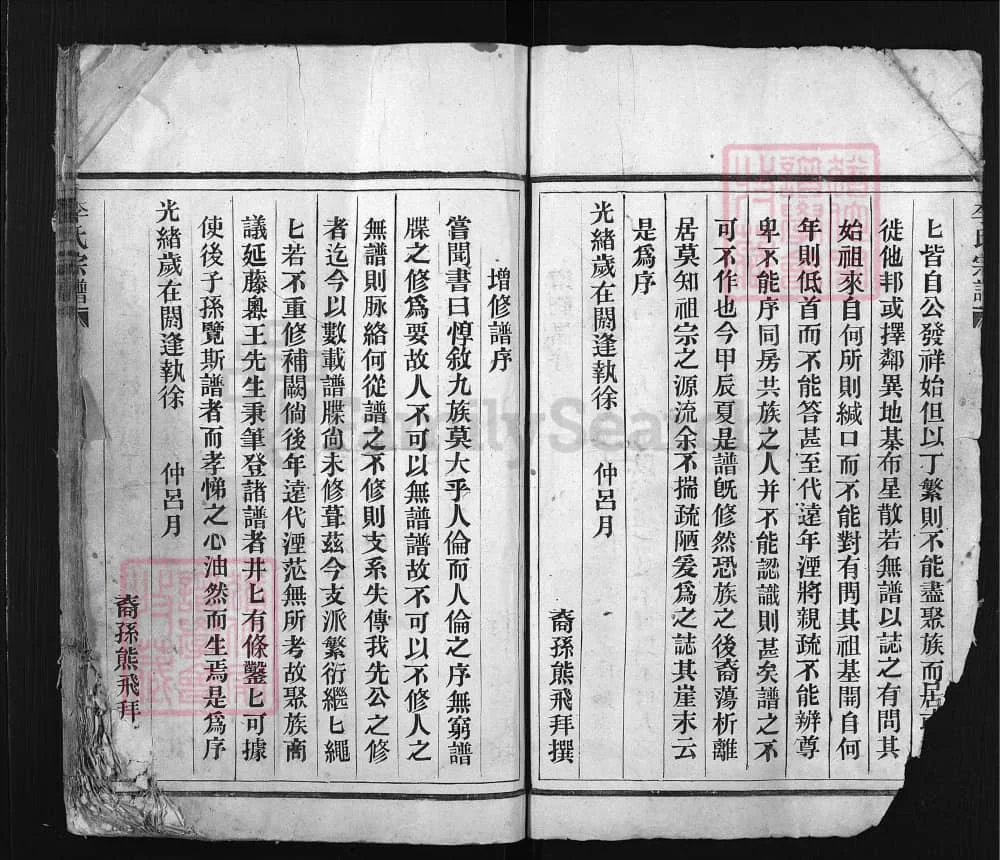 匕皆自公發祥始但以丁繁則不能盡聚族而居
徙他邦或擇鄰異地棊布星散若無譜以誌之有問其
始祖來自何所則緘口而不能對有問其祖基開自何
年則低首而不能答甚至代遠年湮將親疏不能辨尊
卑不能序同房共族之人并不能認識則甚矣譜之不
可不作也今甲辰夏是譜旣修然恐族之後裔蕩析離
居莫知祖宗之源流余不揣疏陋爰爲之誌其崖末云
是爲序
光緒歲在閼逢執徐 仲呂月
裔孫熊飛拜撰
增修譜序
嘗聞書曰惇敘九族莫大乎人倫而人倫之序無窮譜
牒之修爲要故人不可以無譜譜故不可以不修人之
無譜則脉絡何從譜之不修則支系失傳我先公之修
者迄今以數載譜牒尙未修葺茲今支派繁衍繼匕繩
匕若不重修補闕倘後年遠代湮茫無所考故聚族商
議延藤興王先生秉筆登諸譜者井匕有條鑿匕可據
使後子孫覽斯譜者而孝悌之心油然而生焉是爲序
光緒歲在閼逢執徐 仲呂月
裔孫熊飛拜
李氏宗譜
FamilySearch